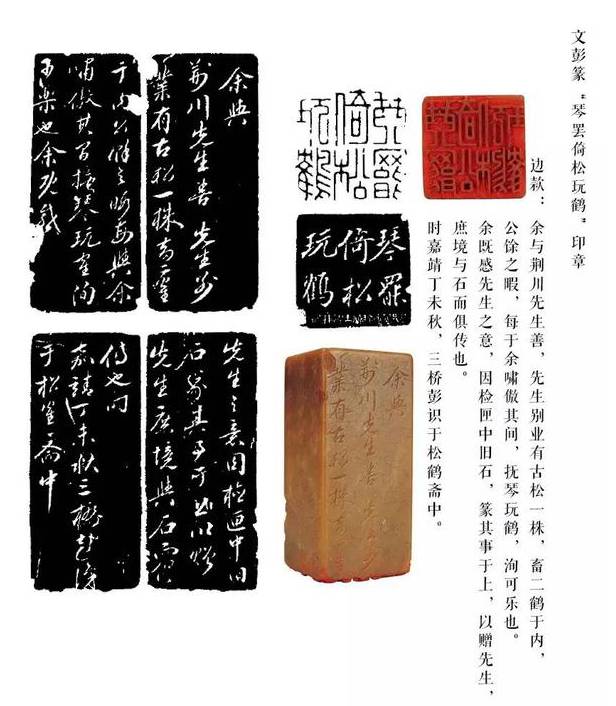 文彭篆“琴罢倚松玩鹤”印章
边款：余与荆川先生善，先生别业有古松一株，畜二鹤于内，
公馀之暇，每于余啸傲其间，抚琴玩鹤，洵可乐也。
余既感先生之意，因检匣中旧石，篆其事于上，以赠先生，
庶境与石而俱传也。
时嘉靖丁未秋，三桥彭识于松鹤斋中。
琴罷
倚松
玩鶴
琴罷
倚松
玩鶴
余與
荆川先生善 先生別
業有古松一株畜二鶴
于内公餘之暇每與余
嘯傲其間撫琴玩鶴洵
可樂也余既感
先生之意因檢匣中旧
石篆其事于上以贈
先生庶境與石而俱
傳也时
嘉靖丁未秋三橋彭識
于松鶴斋中
余與
荆川先生善先生別
業有古松一株畜二